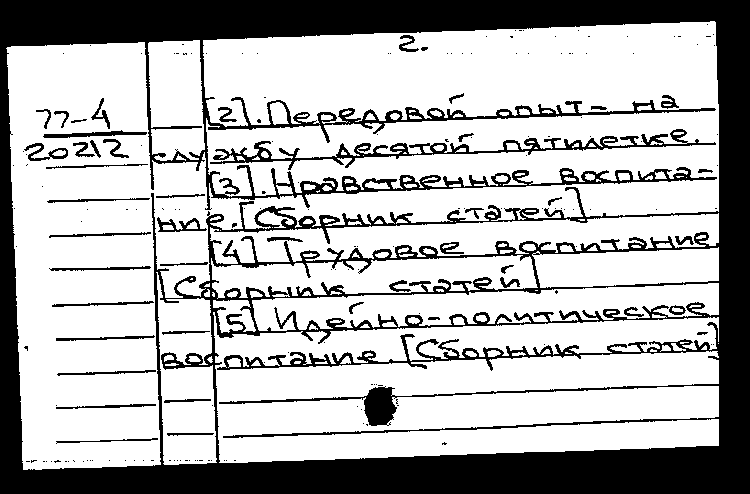 2.
77-4
20212
[2]. Передовой опыт- на
службу десятой пятилетке.
[3]. Нравственное воспита-
ние. [Сборник статей].
[4] Трудовое воспитание
[Сборник статей].
[5]. Идейно-политическое
воспитание. [Сборник статей]